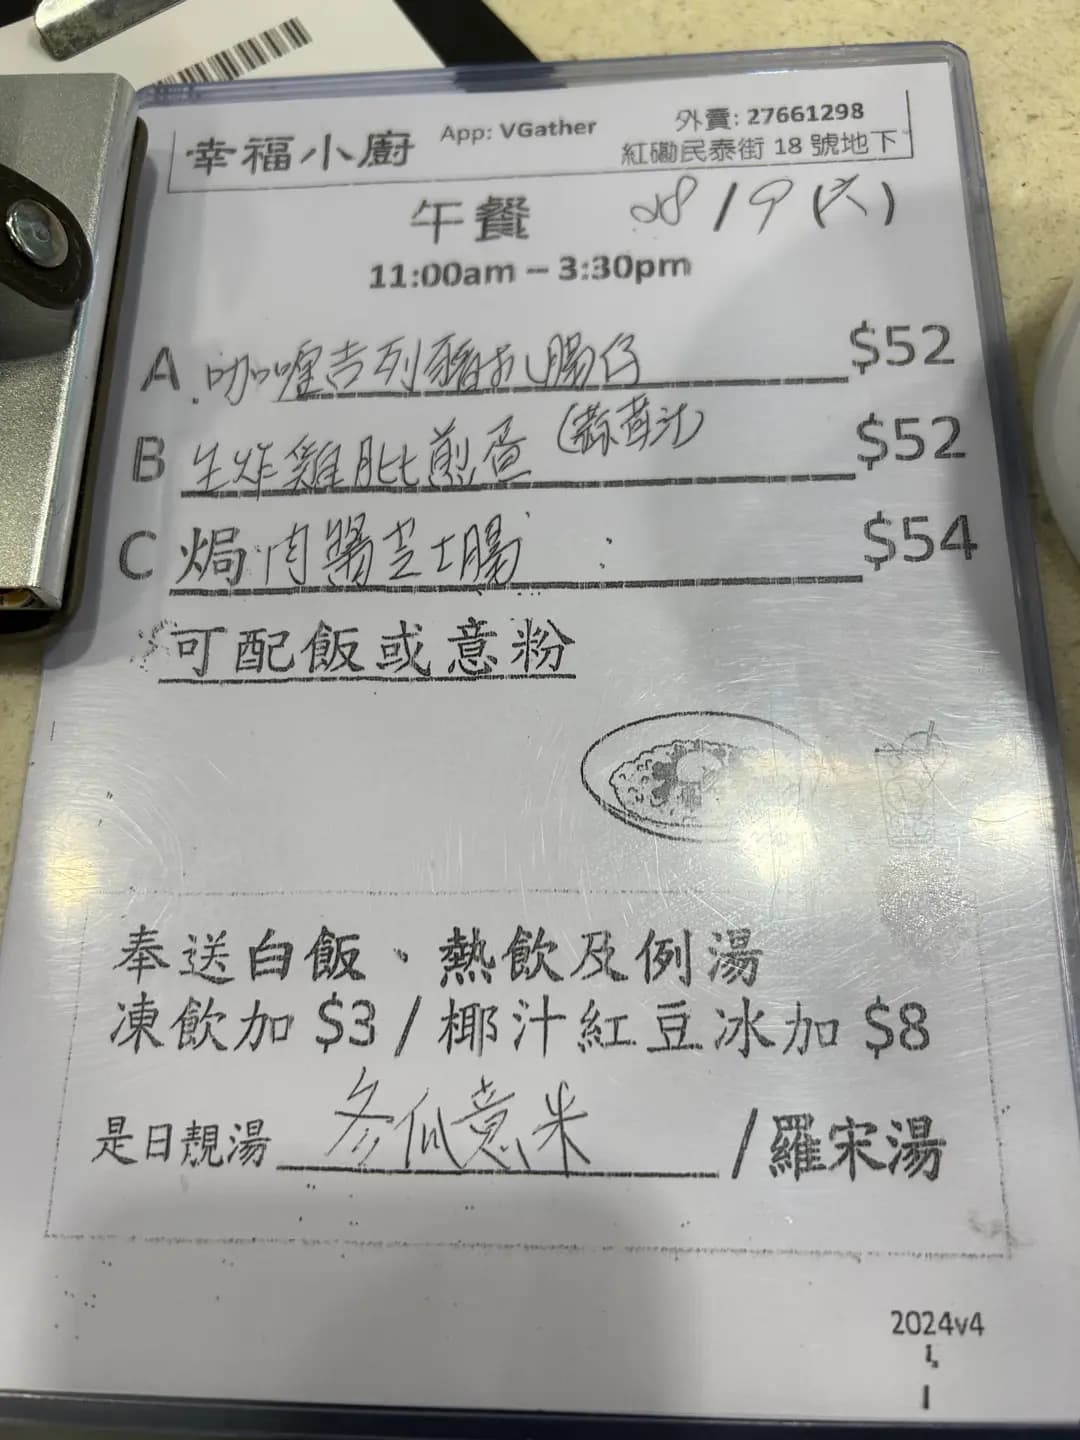 幸福小廚 App: VGather 外賣: 27661298
紅磡民泰街 18 號地下
午餐 28/9 (六)
11:00am – 3:30pm
A 咖喱吉列豬扒腸仔 $52
B 生炸雞肶煎蛋 (蒜茸汁) $52
C 焗肉醬芝士腸 $54
可配飯或意粉
奉送白飯、熱飲及例湯
凍飲加 $3 / 椰汁紅豆冰加 $8
是日靚湯 冬瓜意米 / 羅宋湯
2024v4